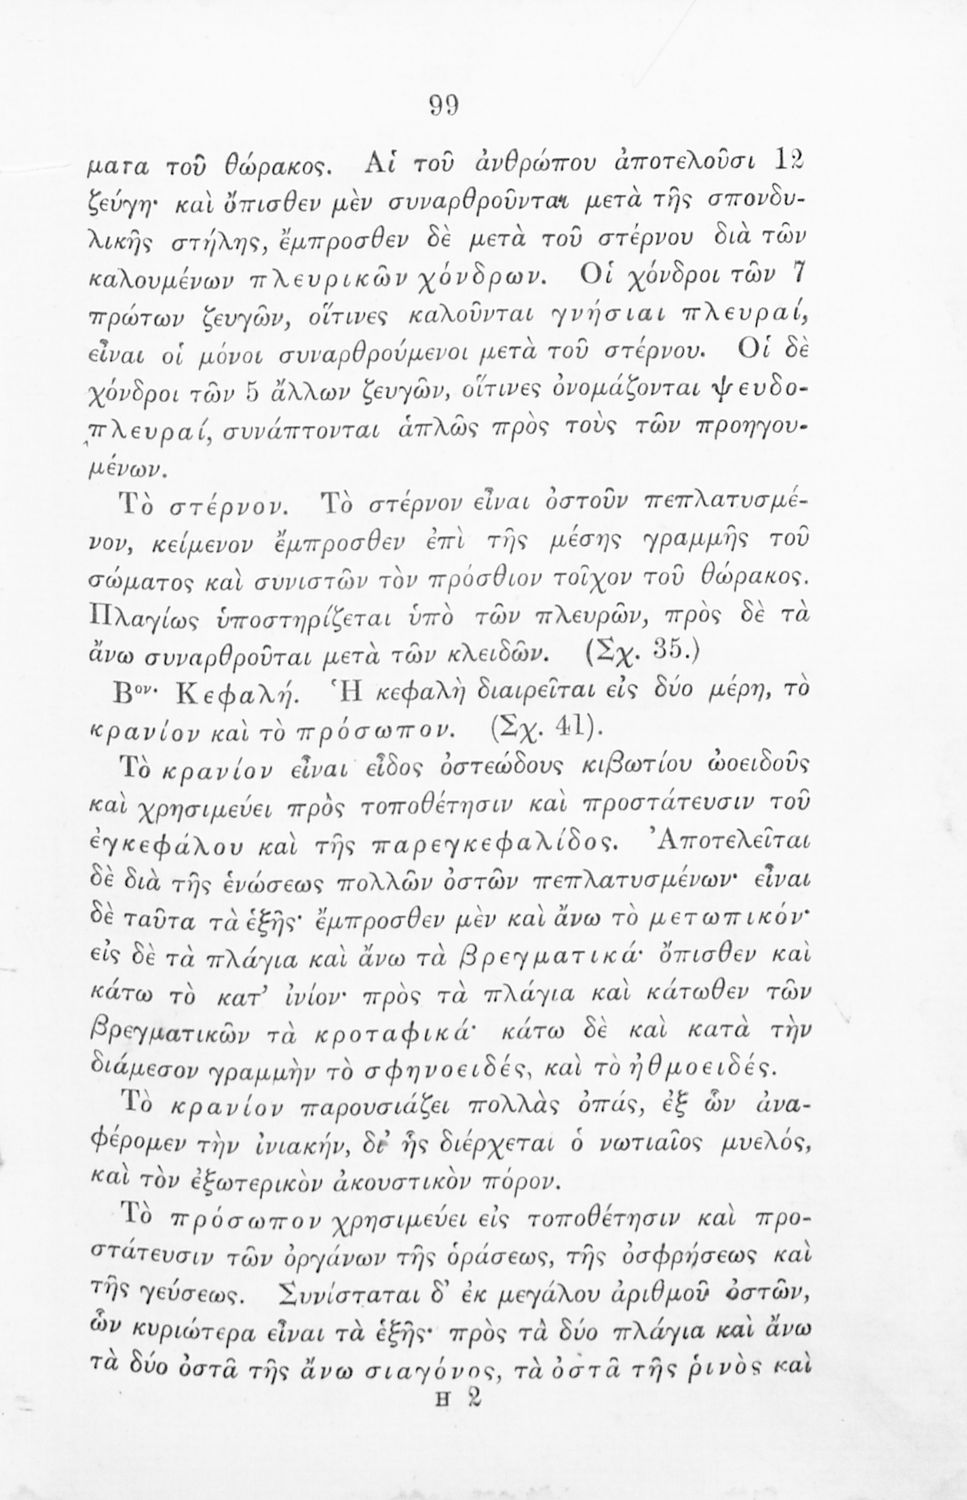 99
ματα τοῦ θώρακος. Αἱ τοῦ ἀνθρώπου ἀποτελοῦσι 12
ζεύγη· καὶ ὄπισθεν μὲν συναρθροῦνται μετὰ τῆς σπονδυ-
λικῆς στήλης, ἔμπροσθεν δὲ μετὰ τοῦ στέρνου διὰ τῶν
καλουμένων πλευρικῶν χόνδρων. Οἱ χόνδροι τῶν 7
πρώτων ζευγῶν, οἵτινες καλοῦνται γνήσιαι πλευραί,
εἶναι οἱ μόνοι συναρθρούμενοι μετὰ τοῦ στέρνου. Οἱ δὲ
χόνδροι τῶν 5 ἄλλων ζευγῶν, οἵτινες ὀνομάζονται ψευδο-
πλευραί, συνάπτονται ἁπλῶς πρὸς τοὺς τῶν προηγου-
μένων.
Τὸ στέρνον. Τὸ στέρνον εἶναι ὀστοῦν πεπλατυσμέ-
νον, κείμενον ἔμπροσθεν ἐπὶ τῆς μέσης γραμμῆς τοῦ
σώματος καὶ συνιστῶν τὸν πρόσθιον τοῖχον τοῦ θώρακος.
Πλαγίως ὑποστηρίζεται ὑπὸ τῶν πλευρῶν, πρὸς δὲ τὰ
ἄνω συναρθροῦται μετὰ τῶν κλειδῶν. (Σχ. 35.)
Βον· Κεφαλή. Ἡ κεφαλὴ διαιρεῖται εἰς δύο μέρη, τὸ
κρανίον καὶ τὸ πρόσωπον. (Σχ. 41).
Τὸ κρανίον εἶναι εἶδος ὀστεώδους κιβωτίου ὠοειδοῦς
καὶ χρησιμεύει πρὸς τοποθέτησιν καὶ προστάτευσιν τοῦ
ἐγκεφάλου καὶ τῆς παρεγκεφαλίδος. Ἀποτελεῖται
δὲ διὰ τῆς ἑνώσεως πολλῶν ὀστῶν πεπλατυσμένων· εἶναι
δὲ ταῦτα τὰ ἑξῆς· ἔμπροσθεν μὲν καὶ ἄνω τὸ μετωπικόν·
εἰς δὲ τὰ πλάγια καὶ ἄνω τὰ βρεγματικά· ὄπισθεν καὶ
κάτω τὸ κατ’ ἰνίον· πρὸς τὰ πλάγια καὶ κάτωθεν τῶν
βρεγματικῶν τὰ κροταφικά· κάτω δὲ καὶ κατὰ τὴν
διάμεσον γραμμὴν τὸ σφηνοειδές, καὶ τὸ ἠθμοειδές.
Τὸ κρανίον παρουσιάζει πολλὰς ὀπάς, ἐξ ὧν ἀνα-
φέρομεν τὴν ἰνιακήν, δι’ ἧς διέρχεται ὁ νωτιαῖος μυελός,
καὶ τὸν ἐξωτερικὸν ἀκουστικὸν πόρον.
Τὸ πρόσωπον χρησιμεύει εἰς τοποθέτησιν καὶ προ-
στάτευσιν τῶν ὀργάνων τῆς ὁράσεως, τῆς ὀσφρήσεως καὶ
τῆς γεύσεως. Συνίσταται δ’ ἐκ μεγάλου ἀριθμοῦ ὀστῶν,
ὧν κυριώτερα εἶναι τὰ ἑξῆς· πρὸς τὰ δύο πλάγια καὶ ἄνω
τὰ δύο ὀστᾶ τῆς ἄνω σιαγόνος, τὰ ὀστᾶ τῆς ῥινὸς καὶ
H 2